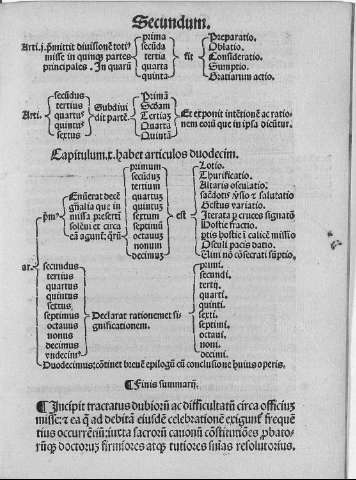 Secundum.
Arti.j. ꝓmittit divisionē toti⁹
misse in quinqꝫ partes
principales. In quarū
prima
secūda
tertia
quarta
quinta
fit
Preparatio.
Oblatio.
Consideratio.
Sumptio.
Gratiarum actio.
Arti.
secūdus
tertius
quartus
quintus
sextus
Subdivi
dit partē
Primā
Secdam
Tertiaꝫ
Quartā
Quintā
Et exponit intētionē ac ratio-
nem eorū que in ipsa dicūtur.
Capitulum.x. habet articulos duodecim.
ar.
pm⁹
Enūerat decē
gn̄alia que in
missa presertī
solēni et circa
eā agunt: qrū
primum
secūduꝫ
tertium
quartuꝫ
quintuꝫ
sextum
septimū
octauuꝫ
nonum
decimuꝫ
est
Lotio.
Thurificatio.
Altaris osculatio.
sacdotis ꝟsio & salutatio
Gestus variatio.
Iterata ꝑ cruces signatio
Hostie fractio.
ptis hostie ī calicē missio
Osculi pacis datio.
Uini nō cōsecrati sūptio.
secundus
tertius
quartus
quintus
sextus
septimus
octauus
nonus
decimus
vndecim⁹
Declarat rationem et si-
gnificationem.
primi.
secundi.
tertij.
quarti.
quinti.
sexti.
septimi.
octaui.
noni.
decimi.
Duodecimus: cōtinet breuē epilogū cū conclusione huius operis.
¶ Finis summarij.
¶ Incipit tractatus dubiorū ac difficultatū circa officiuꝫ
misse: & ea q̄ ad debitā eiusdē celebrationē exigunt̄ frequē
tius occurrētiū: iuxta sacrorū canonū cōstitutiōes ꝓbato-
rūqꝫ doctorum firmiores atqꝫ tutiores snīas resolutorius.